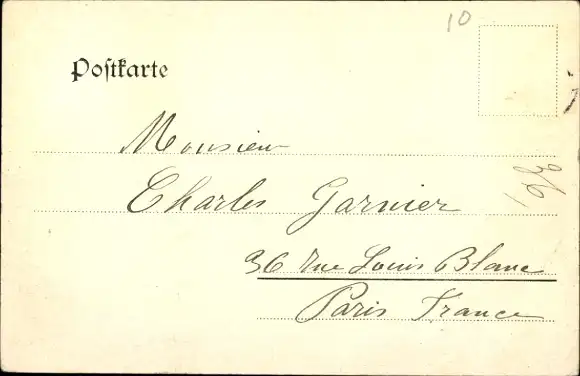 10
Postkarte
Monsieur
Charles Garnier
36 rue Louis Blanc
Paris France